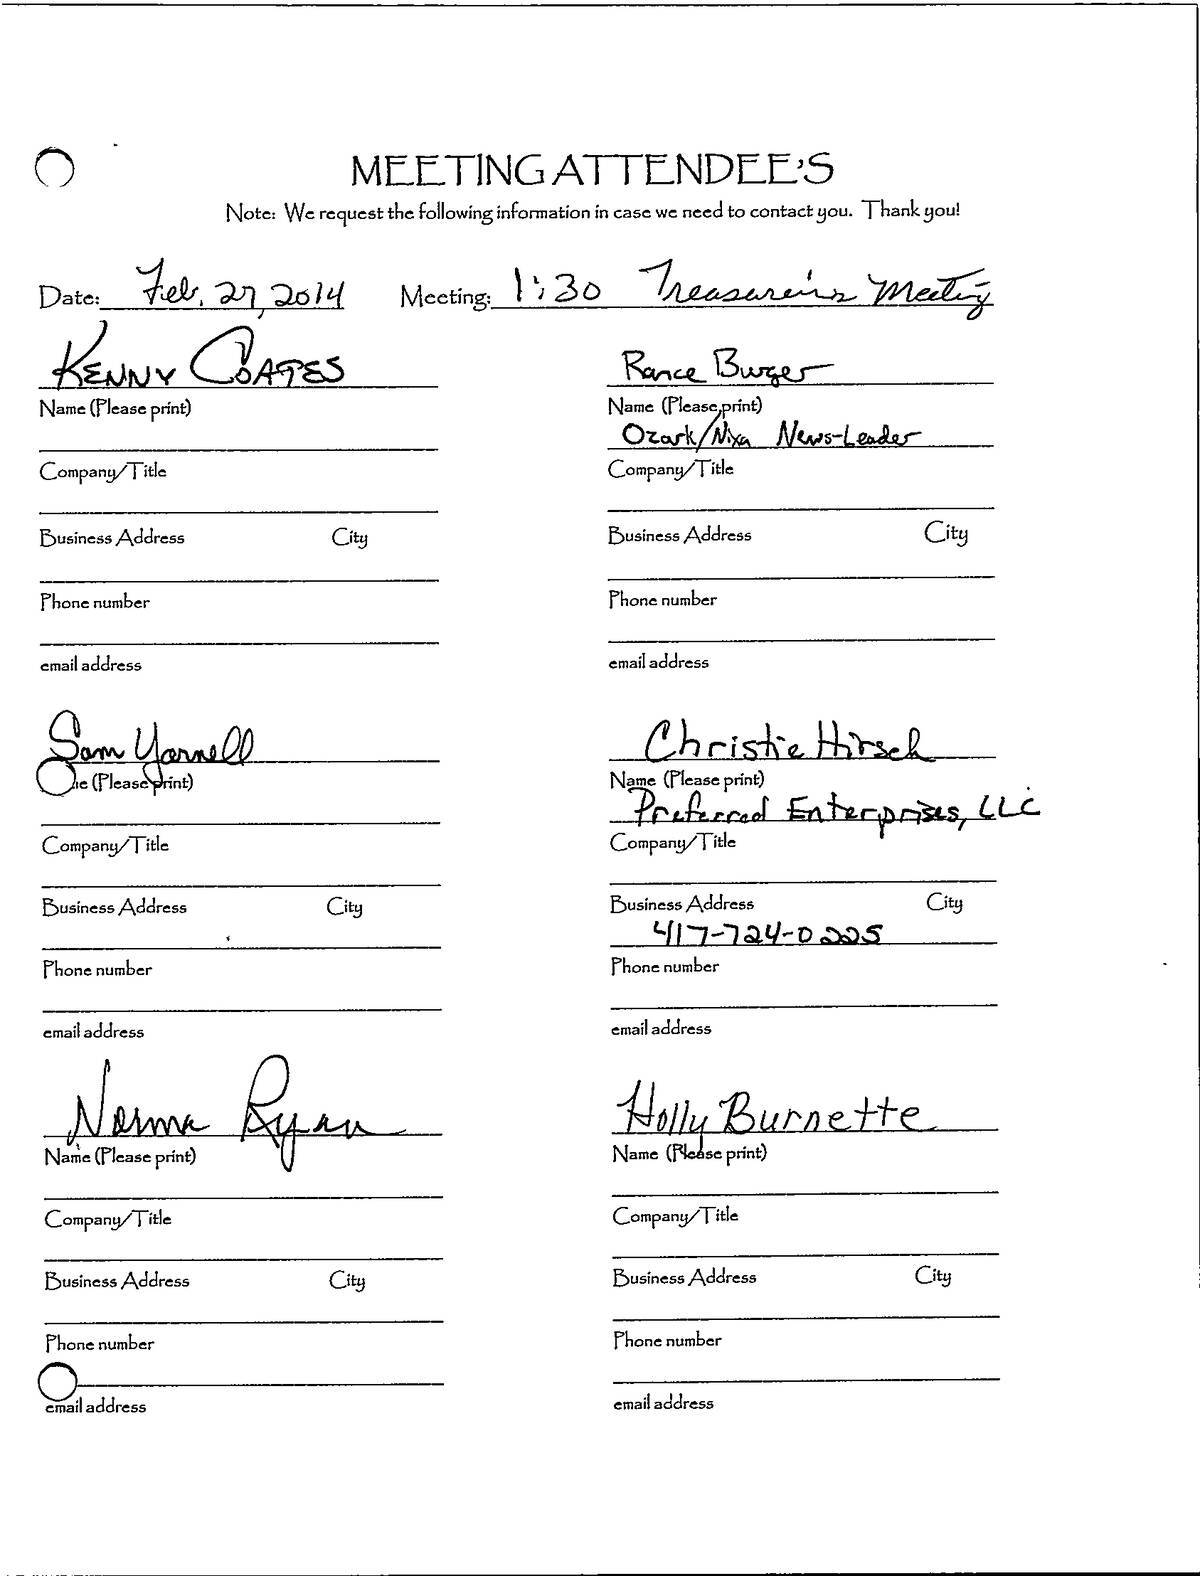 MEETING ATTENDEE'S
Note: We request the following information in case we need to contact you. Thank you!
Date: Feb. 27, 2014 Meeting: 1:30 Treasurer's Meeting
Kenny Coates
Name (Please print)
Company/Title
Business Address City
Phone number
email address
Rance Burger
Name (Please print)
Ozark/Nixa News-Leader
Company/Title
Business Address City
Phone number
email address
Sam Yarnell
(Please print)
Company/Title
Business Address City
Phone number
email address
Christie Hirsch
Name (Please print)
Preferred Enterprises, LLC
Company/Title
Business Address City
417-724-0225
Phone number
email address
Norma Ryan
Name (Please print)
Company/Title
Business Address City
Phone number
email address
Holly Burnette
Name (Please print)
Company/Title
Business Address City
Phone number
email address